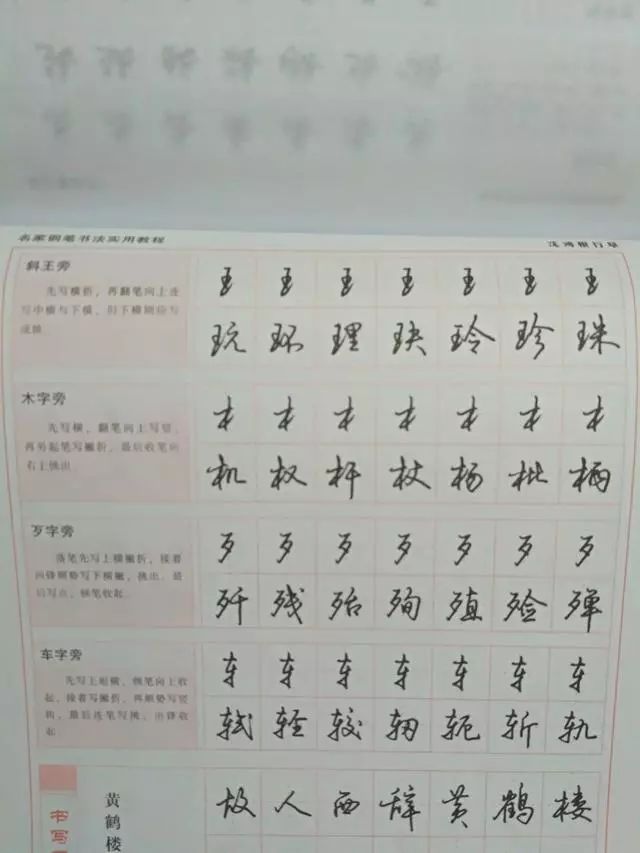 名家钢笔书法实用教程
沈鸿根行草
斜王旁
先写横折，再翻笔向上连
写中横与下横，但下横则应写
成挑
王 王 王 王 王 王 王
玩 环 理 玦 玲 珍 珠
木字旁
先写横，翻笔向上写竖，
再另起笔写撇折，最后收笔向
右上挑出
木 木 木 木 木 木 木
机 权 杆 杖 杨 枇 柄
歹字旁
落笔先写上横撇折，接着
向锋顺势写下横撇，挑出，最
后写点，顿笔收起
歹 歹 歹 歹 歹 歹 歹
歼 残 殆 殉 殖 殓 殚
车字旁
先写上短横，侧笔向上收
起，接着写撇折，再顺势写竖
钩，最后连笔写挑，出锋收
起
车 车 车 车 车 车 车
轼 轻 较 轫 轭 斩 轨
书写
黄鹤楼
故 人 西 辞 黄 鹤 楼